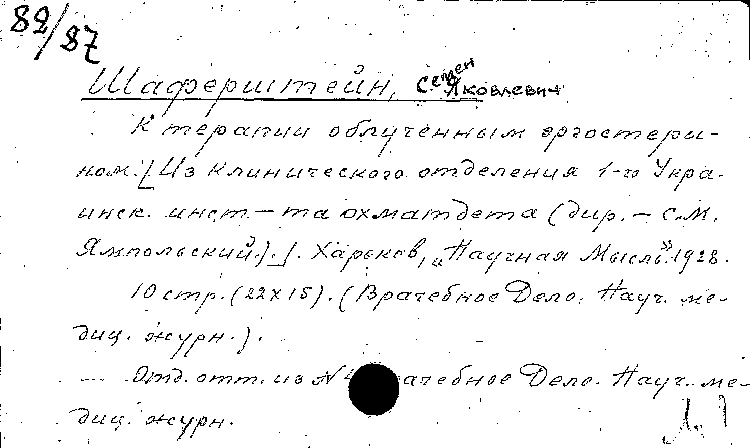 82/87
Шаферштейн, Семен Яковлевич
К терапии облученным эргостери-
ном. [Из клинического отделения 1-го Укра-
инск. инст.-та охматдета (дир. - С.М.
Ямпольский).]. Харьков, „Научная Мысль". 1928.
10 стр. (22х15). (Врачебное Дело. Науч. ме-
диц. журн.).
Отд. отт. из № рачебное Дело. Науч. ме-
диц. журн.